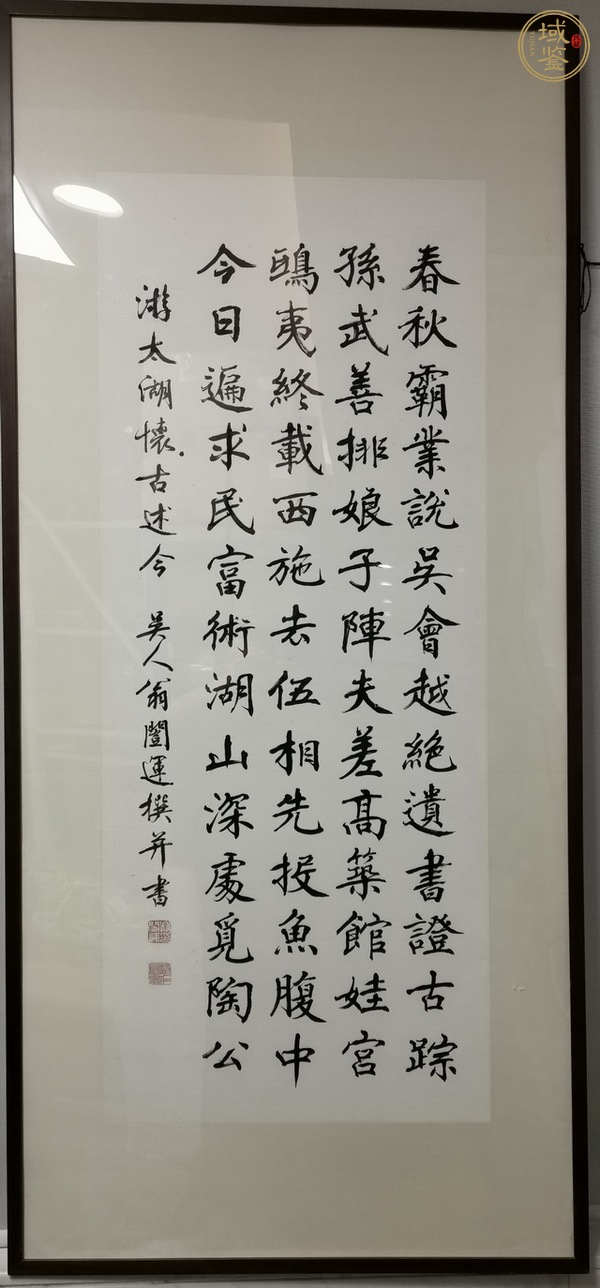 春秋霸業説吴會越絶遺書證古踪
孫武善排娘子陣夫差髙築館娃宮
鴟夷終載西施去伍相先投魚腹中
今日遍求民富術湖山深處覓陶公
游太湖懷古述今 吴人翁闓運撰并書
域鑒